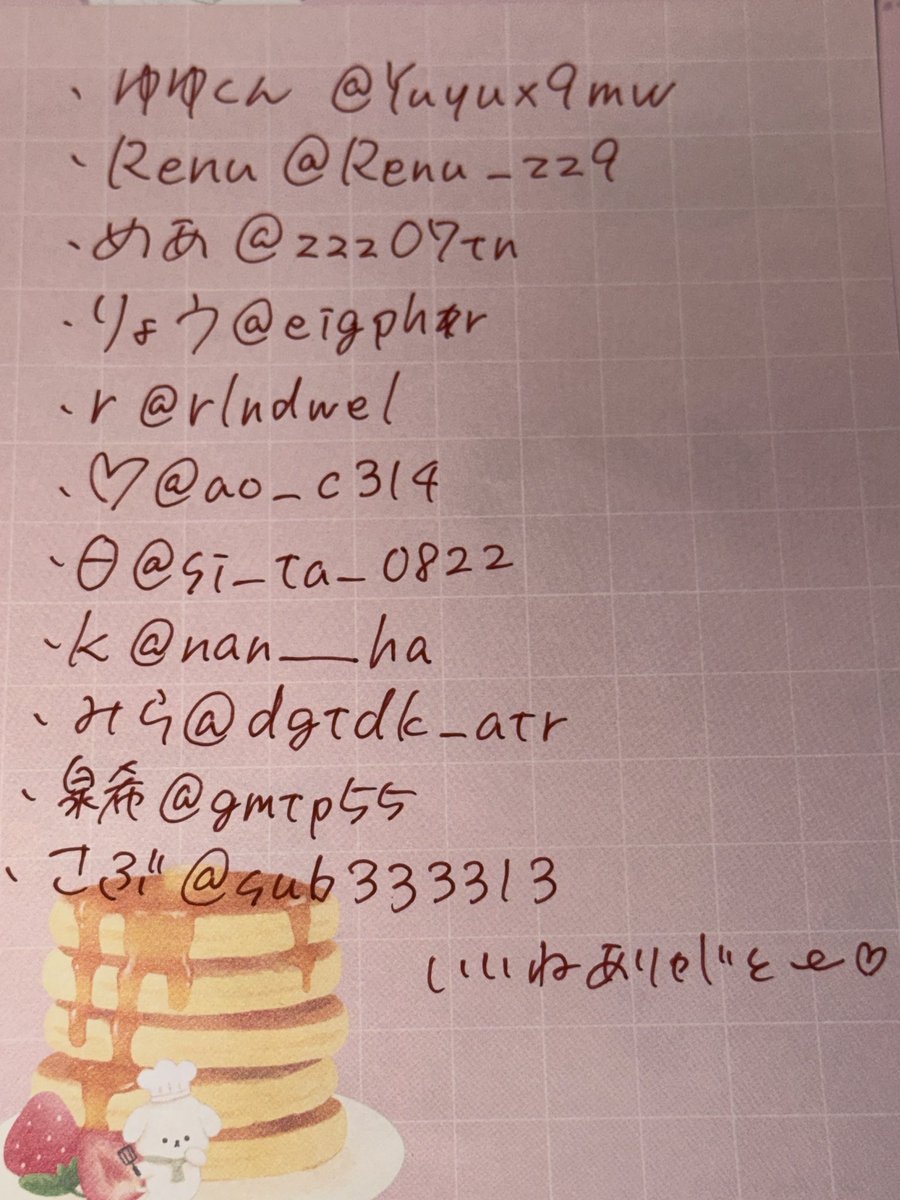 、ゆゆくん @Yuyux9mw
、Renu @Renu_zz9
、めあ @zzz07tn
、りょう@eigphxr
、r @rlndwel
、♡@ao_c314
、θ@si_ta_0822
、k @nan__ha
、みら@dgtdk_atr
、泉希@gmtp55
、さぶ@sub333313
いいねありがとせ♡